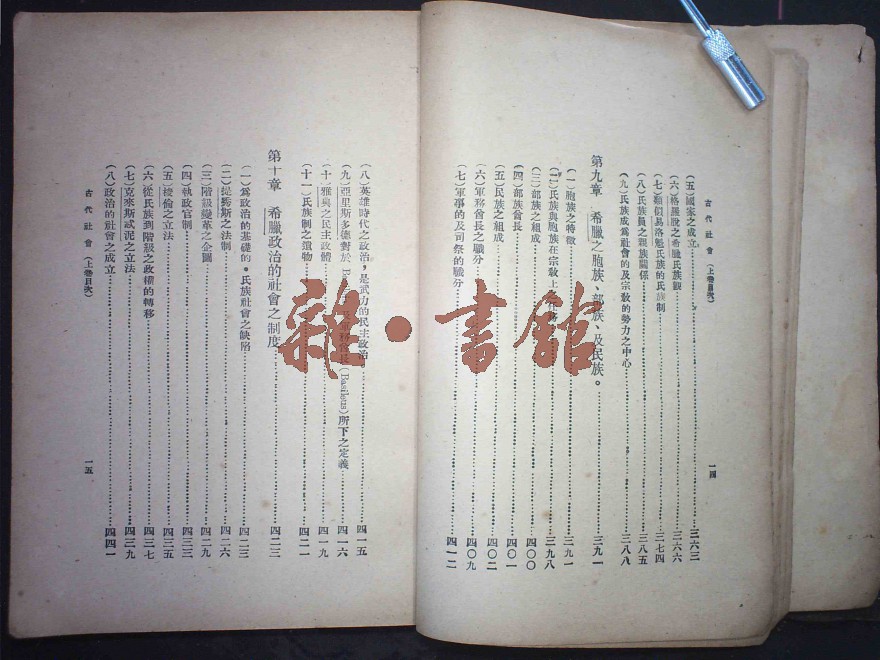 古代社會（上卷目次）
一四
（五）國家之成立……三六三
（六）格羅脫之希臘氏族觀……三六六
（七）類似易洛魁氏族的氏族制……三七四
（八）氏族員之親族關係……三八五
（九）氏族成爲社會的及宗敎的勢力之中心……三八八
第九章　希臘之胞族、部族、及民族。……三九一
（一）胞族之特徵……三九一
（二）氏族與胞族在宗敎上……三九八
（三）部族之組成……四〇〇
（四）部族酋長……四〇一
（五）民族之組成……四〇二
（六）軍務酋長之職分……四〇九
（七）軍事的及司祭的職分……四一二
（八）英雄時代之政治，是武力的民主政治……四一五
（九）亞里斯多德對於……（Basileus）所下之定義……四一六
（十）雅典之民主政體……四一九
（十一）氏族制之遺物……四二一
第十章　希臘政治的社會之制度……四二三
（一）爲政治的基礎的。氏族社會之缺陷……四二三
（二）提秀斯之法制……四二六
（三）階級變革之企圖……四二九
（四）執政官制……四三三
（五）梭倫之立法……四三五
（六）從氏族到階級之政權的轉移……四三七
（七）克來斯忒泥之立法……四三九
（八）政治的社會之成立……四四一
古代社會（上卷目次）
一五
雜·書館